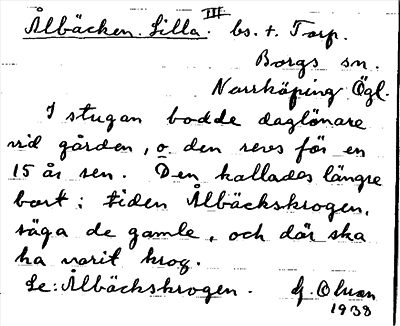 Ålbäcken. Lilla. III bs. t. Torp.
Borgs sn.
Norrköping Ögl.
I stugan bodde daglönare
vid gården, o. den revs för en
15 år sen. Den kallades längre
bort i tiden Ålbäckskrogen,
säga de gamle, och där ska
ha varit krog.
Se: Ålbäckskrogen. G. Olsson
1938